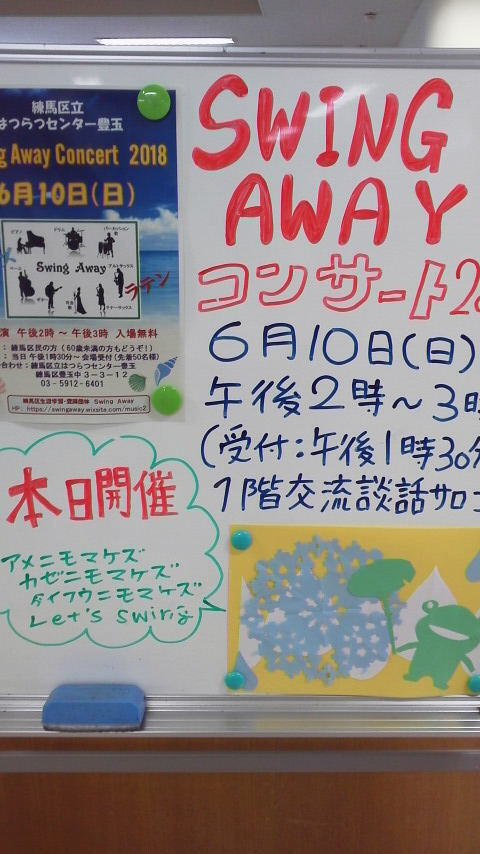 練馬区立
はつらつセンター豊玉
g Away Concert 2018
6月10日(日)
ピアノ
ドラム
パーカッション
Swing Away
アルトサックス
ベース
ギター
テナーサックス
ラテン
演 午後2時～午後3時 入場無料
:練馬区民の方(60歳未満の方もどうぞ!)
:当日 午後1時30分～ 会場受付(先着50名様)
合わせ:練馬区立はつらつセンター豊玉
練馬区豊玉中3-3-12
03-5912-6401
Swing Away
HP: https://swingaway.wixsite.com/music2
SWING
AWAY
コンサート2
6月10日(日)
午後2時～3時
(受付:午後1時30分
1階交流談話サロ
本日開催
アメニモマケズ
カゼニモマケズ
タイフウニモマケズ
Let's swing